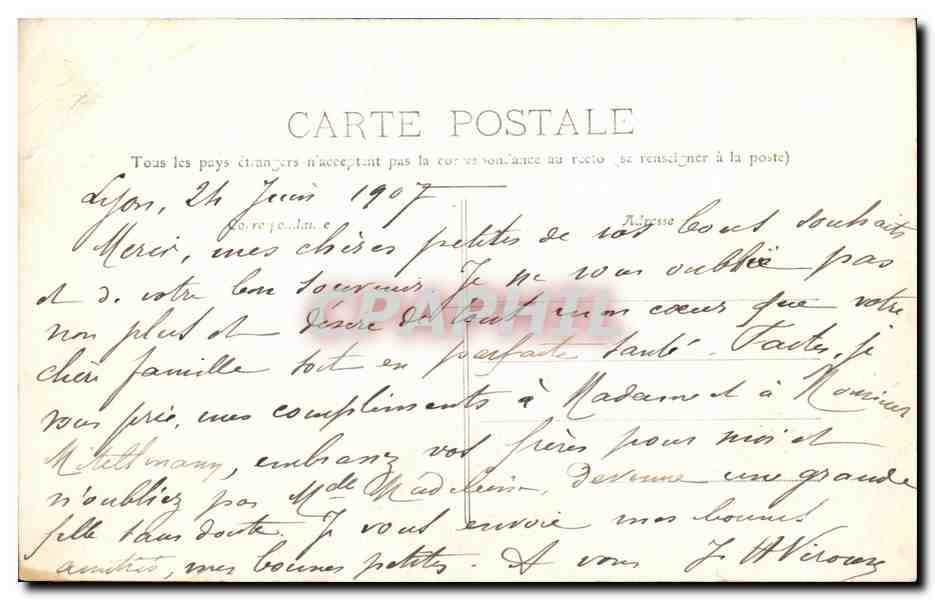 CARTE POSTALE
Tous les pays étrangers n'acceptent pas la correspondance au recto (se renseigner à la poste)
Lyon, 24 Juin 1907
Correspondance Adresse
Merci, mes chères petites de vos bons souhaits
et de votre bon souvenir. Je ne vous oublie pas
non plus et désire de tout mon cœur que votre
chère famille soit en parfaite santé. Faites, je
vous prie, mes compliments à Madame et à Monsieur
embrassez vos frères pour moi et
n'oubliez pas Mdlle Madeleine, devenue une grande
fille sans doute. Je vous envoie mes bonnes
amitiés, mes bonnes petites. A vous
CPAPHIL